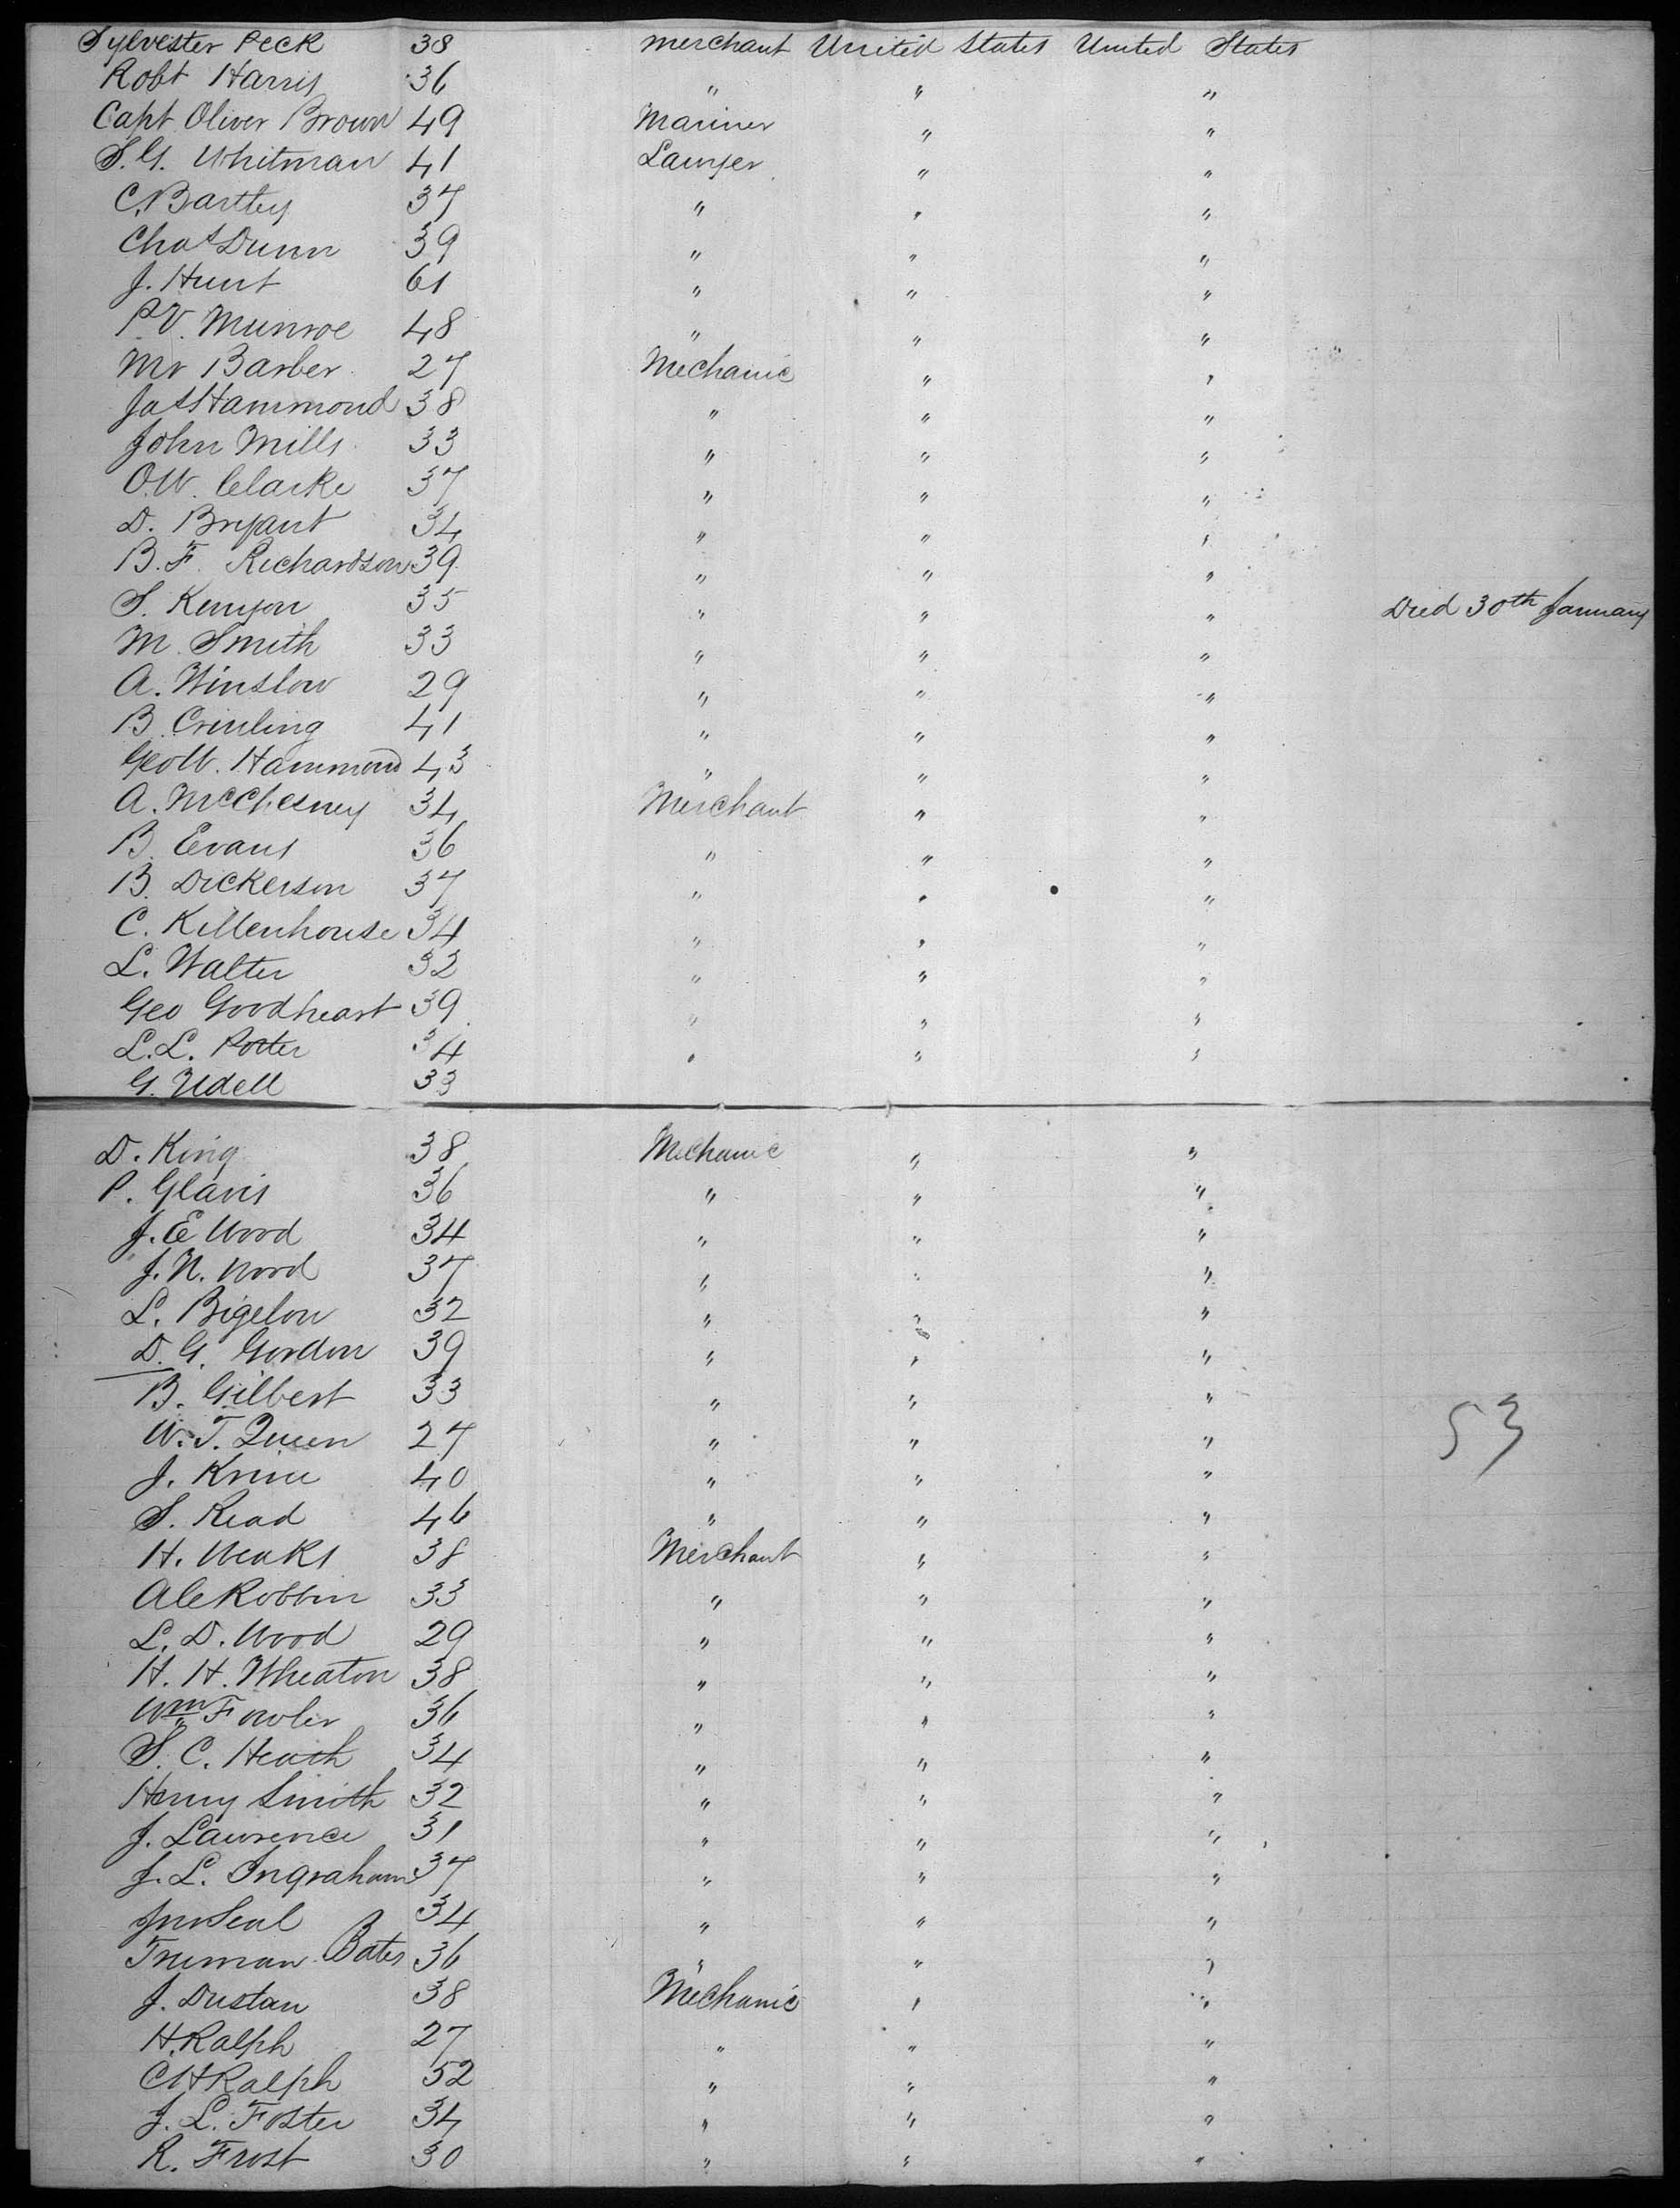 Sylvester Peck 38 merchant United States United States
Robt Harris 36 " " "
Capt Oliver Brown 49 Mariner " "
S. G. Whitman 41 Lawyer " "
C. Bartley 37 " " "
Chas Dunn 39 " " "
J. Hunt 61 " " "
P V. Munroe 48 " " "
Mr Barber 27 Mechanic " "
Jas Hammond 38 " " "
John Mills 33 " " "
O.W. Clarke 37 " " "
D. Bryant 34 " " "
B. F. Richardson 39 " " "
S. Kenyon 35 " " " Died 30th January
M. Smith 33 " " "
A. Winslow 29 " " "
B. Crinling 41 " " "
Geo W. Hammond 43 " " "
A. McChesney 34 Merchant " "
B. Evans 36 " " "
B. Dickerson 37 " " "
C. Kellenhouse 34 " " "
L. Walter 32 " " "
Geo Goodheart 39 " " "
L. L. Porter 34 " " "
G. Udell 33
D. King 38 Mechanic " "
P. Glavis 36 " " "
J. E Wood 34 " " "
J. N. Wood 37 " " "
L. Bigelow 32 " " "
D. G. Gordon 39 " " "
B. Gilbert 33 " " "
53
W. T. Queen 27 " " "
J. 40 " " "
S. Read 46 " " "
H. Weaks 38 Merchant " "
A C Robbin 33 " " "
L. D. Wood 29 " " "
H. H. Wheaton 38 " " "
Wm Fowler 36 " " "
S. C. Heath 34 " " "
Henry Smith 32 " " "
J. Lawrence 31 " " "
J. L. Ingraham 37 " " "
Jno Seal 34 " " "
Truman Bates 36 " " "
J. Dustan 38 Mechanic " "
H. Ralph 27 " " "
C H Ralph 52 " " "
J. L. Foster 34 " " "
R. Frost 30 " " "